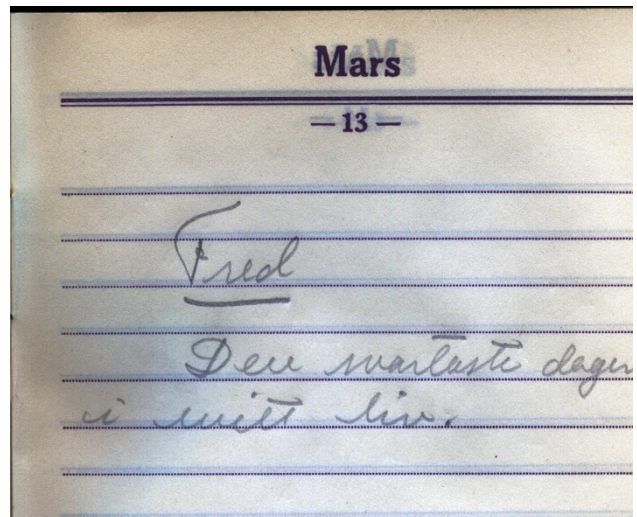 Mars
— 13 —
Fred
Den svartaste dagen
i mitt liv.